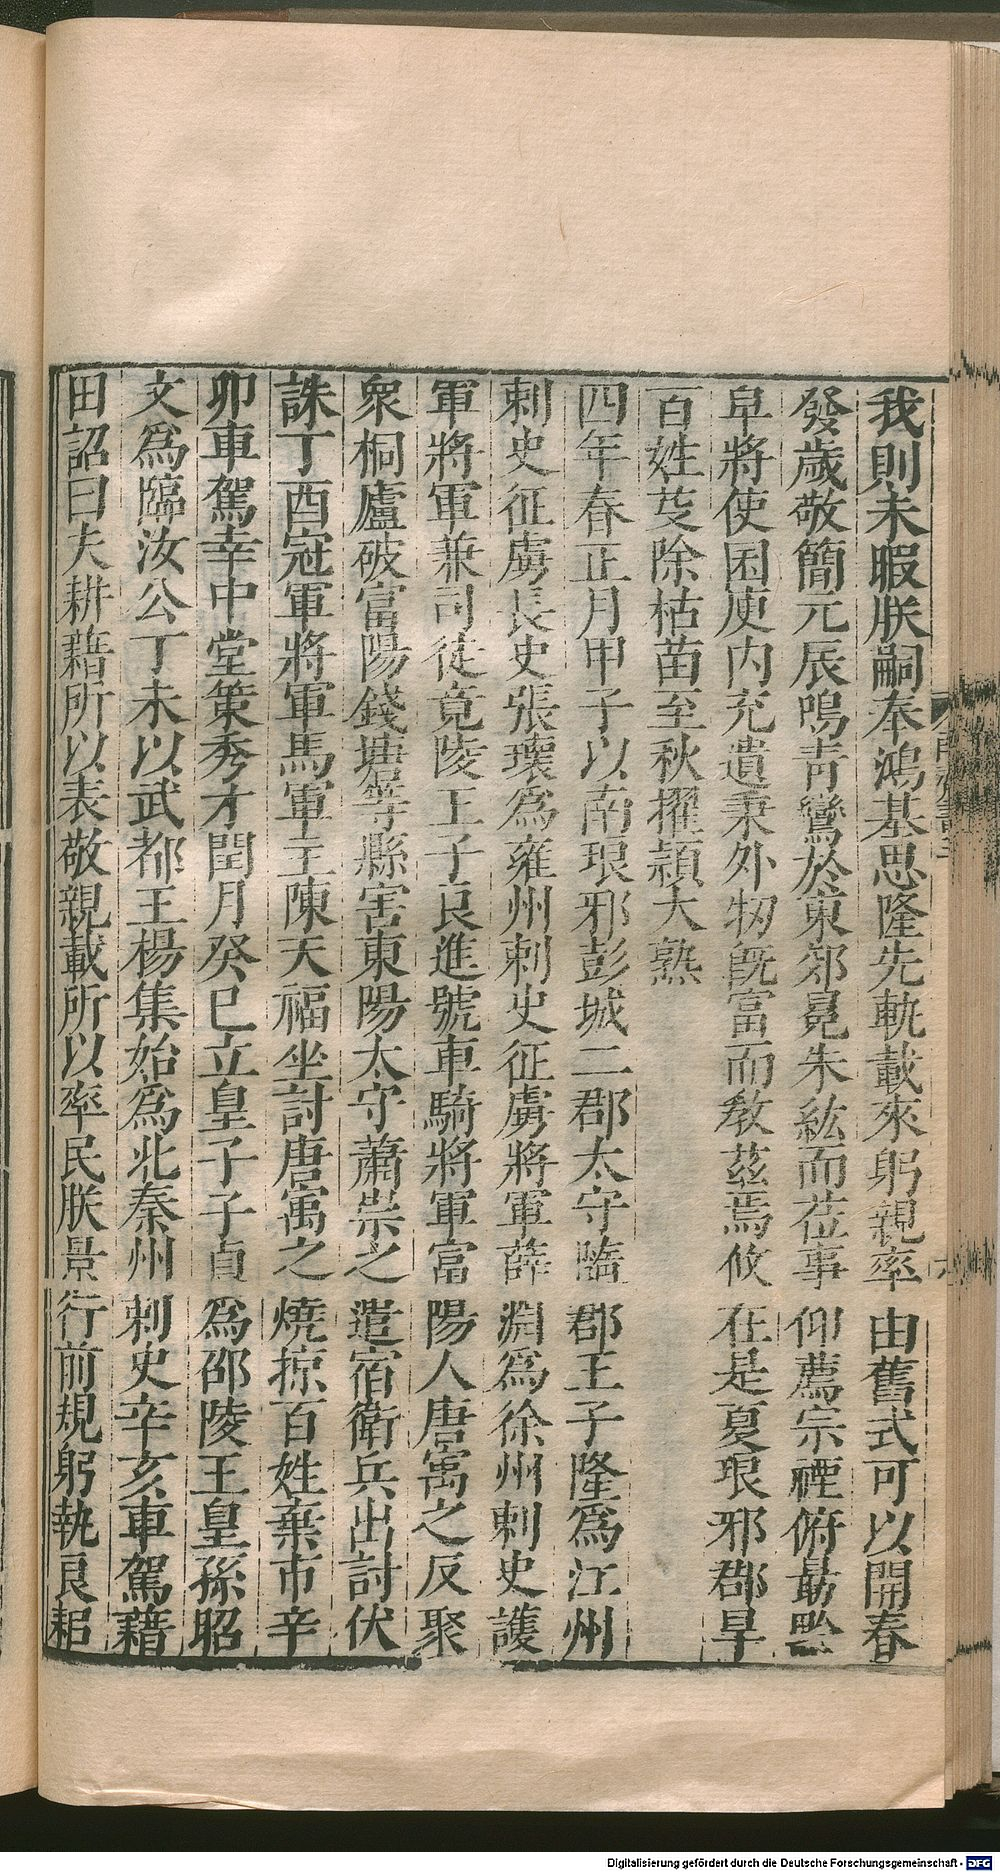 我則未暇朕嗣奉鴻基思隆先軌載來躬親率由舊式可以開春
發歲敬簡元辰鳴靑鸞於東郊冕朱紘而莅事仰薦宗禋俯朂黔
皁將使囷庾内充遺秉外牣旣富而敎茲焉攸在是夏琅邪郡旱
百姓芟除枯苗至秋擢穎大熟
四年春正月甲子以南琅邪彭城二郡太守隨郡王子隆爲江州
刺史征虜長史張瓌爲雍州刺史征虜將軍薛淵爲徐州刺史護
軍將軍兼司徒竟陵王子良進號車騎將軍富陽人唐㝢之反聚
衆桐廬破富陽錢塘等縣害東陽太守蕭崇之遣宿衛兵出討伏
誅丁酉冠軍將軍馬軍主陳天福坐討唐㝢之燒掠百姓棄市辛
卯車駕幸中堂策秀才閏月癸巳立皇子子貞爲邵陵王皇孫昭
文爲臨汝公丁未以武都王楊集始爲北秦州刺史辛亥車駕藉
田詔曰夫耕藉所以表敬親載所以率民朕景行前規躬執良耜
Digitalisierung gefördert durch die Deutsche Forschungsgemeinschaft - DFG